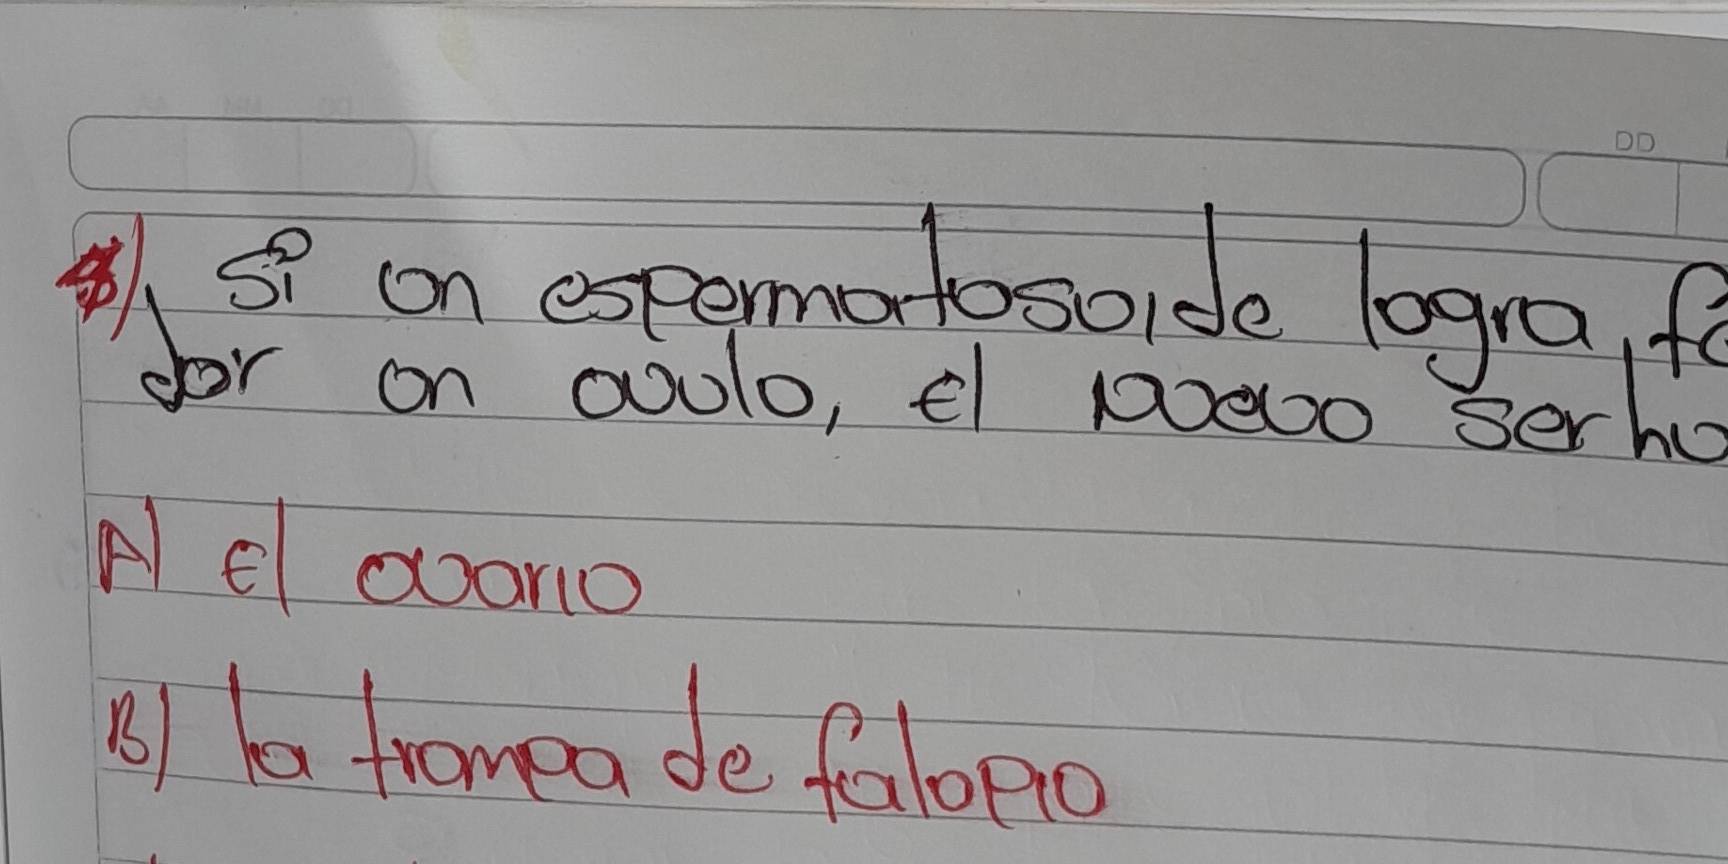 DD
Si un espermatosoide logra, fe
dar un ovulo, el nuevo ser hu
A) El ovario
B) la trompa de falopio